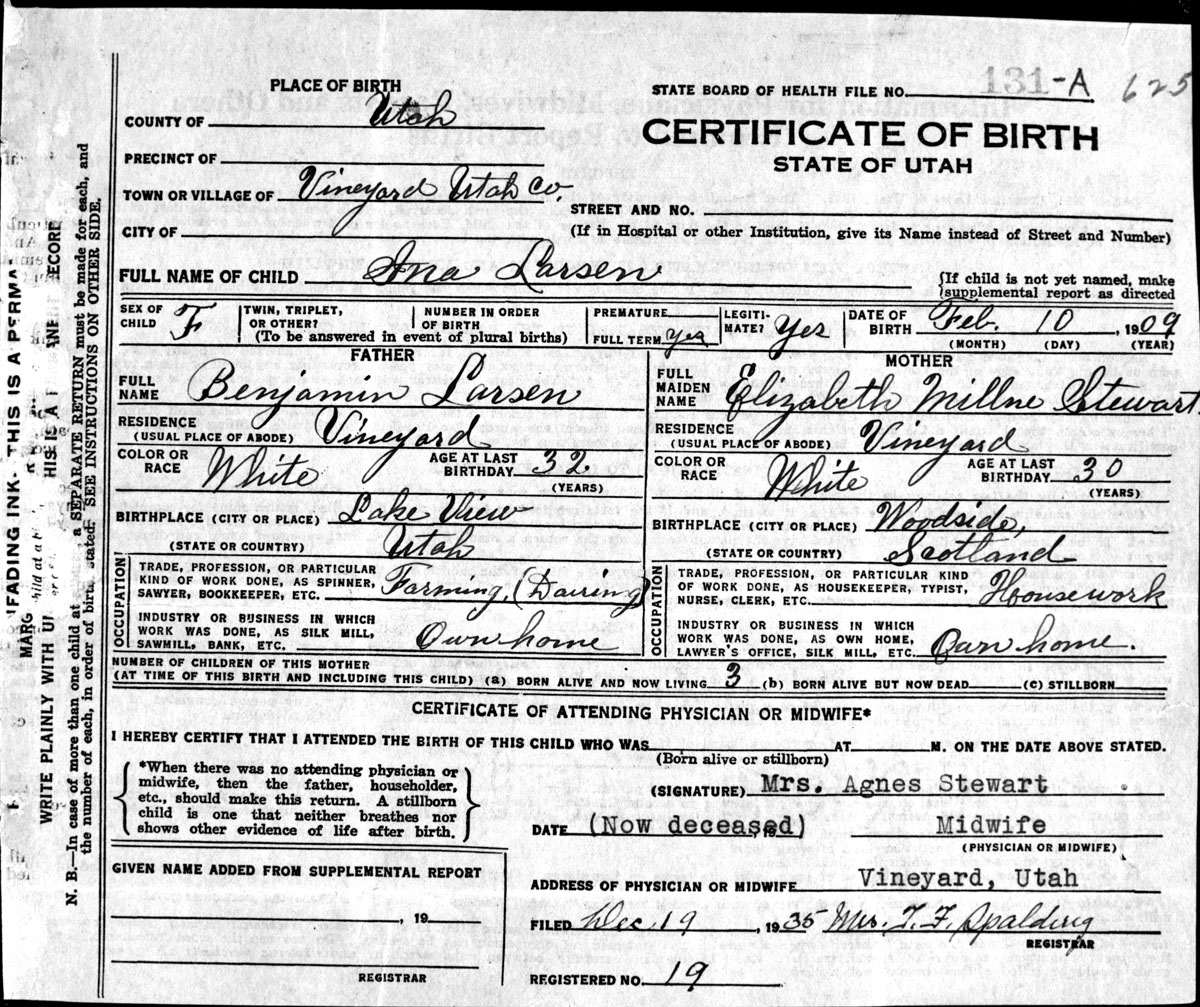 PLACE OF BIRTH
STATE BOARD OF HEALTH FILE NO. 131-A 625
COUNTY OF Utah
CERTIFICATE OF BIRTH
STATE OF UTAH
PRECINCT OF
TOWN OR VILLAGE OF Vineyard Utah Co.
STREET AND NO.
CITY OF
(If in Hospital or other Institution, give its Name instead of Street and Number)
FULL NAME OF CHILD Ana Larsen
{If child is not yet named, make
supplemental report as directed
SEX OF CHILD F
TWIN, TRIPLET, OR OTHER?
NUMBER IN ORDER OF BIRTH
(To be answered in event of plural births)
PREMATURE
FULL TERM yes
LEGITI-MATE? Yes
DATE OF BIRTH Feb. 10, 1909
(MONTH) (DAY) (YEAR)
FATHER
FULL NAME Benjamin Larsen
RESIDENCE (USUAL PLACE OF ABODE) Vineyard
COLOR OR RACE White AGE AT LAST BIRTHDAY 32
(YEARS)
BIRTHPLACE (CITY OR PLACE) Lake View
(STATE OR COUNTRY) Utah
OCCUPATION
TRADE, PROFESSION, OR PARTICULAR
KIND OF WORK DONE, AS SPINNER,
SAWYER, BOOKKEEPER, ETC. Farming, (Dairing)
INDUSTRY OR BUSINESS IN WHICH
WORK WAS DONE, AS SILK MILL,
SAWMILL, BANK, ETC. Own home
MOTHER
FULL MAIDEN NAME Elizabeth Millne Stewart
RESIDENCE (USUAL PLACE OF ABODE) Vineyard
COLOR OR RACE White AGE AT LAST BIRTHDAY 30
(YEARS)
BIRTHPLACE (CITY OR PLACE) Woodside,
(STATE OR COUNTRY) Scotland
OCCUPATION
TRADE, PROFESSION, OR PARTICULAR KIND
OF WORK DONE, AS HOUSEKEEPER, TYPIST,
NURSE, CLERK, ETC. Housework
INDUSTRY OR BUSINESS IN WHICH
WORK WAS DONE, AS OWN HOME,
LAWYER'S OFFICE, SILK MILL, ETC. Own home.
NUMBER OF CHILDREN OF THIS MOTHER
(AT TIME OF THIS BIRTH AND INCLUDING THIS CHILD) (a) BORN ALIVE AND NOW LIVING 3 (b) BORN ALIVE BUT NOW DEAD (c) STILLBORN
CERTIFICATE OF ATTENDING PHYSICIAN OR MIDWIFE*
I HEREBY CERTIFY THAT I ATTENDED THE BIRTH OF THIS CHILD WHO WAS AT M. ON THE DATE ABOVE STATED.
(Born alive or stillborn)
*When there was no attending physician or
midwife, then the father, householder,
etc., should make this return. A stillborn
child is one that neither breathes nor
shows other evidence of life after birth.
(SIGNATURE) Mrs. Agnes Stewart
DATE (Now deceased) 19 Midwife
(PHYSICIAN OR MIDWIFE)
GIVEN NAME ADDED FROM SUPPLEMENTAL REPORT
ADDRESS OF PHYSICIAN OR MIDWIFE Vineyard, Utah
, 19
FILED Dec 19, 1935 Mrs. T. F. Spalding
REGISTRAR
REGISTRAR
REGISTERED NO. 19
WRITE PLAINLY WITH
FADING INK-THIS IS A
N. B.—In case of more than one child at a SEPARATE RETURN must be made for each, and
the number of each, in order of birth, stated. SEE INSTRUCTIONS ON OTHER SIDE.